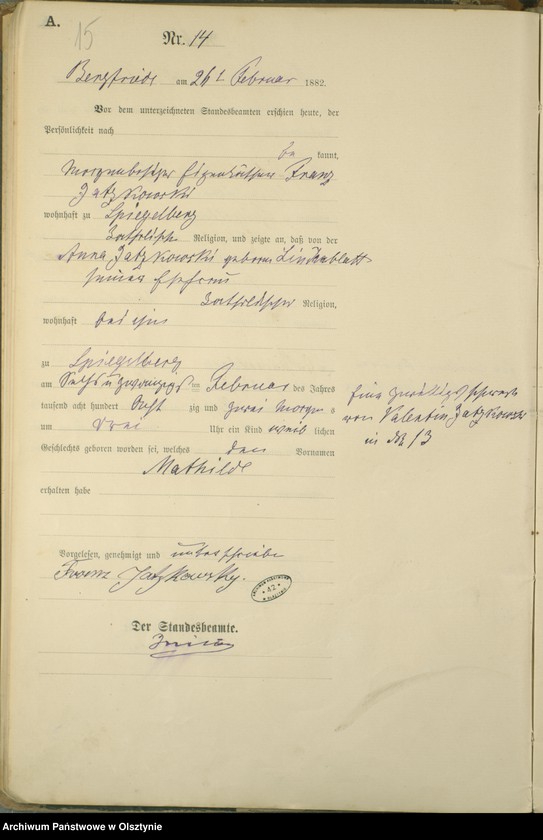 A.
15
Nr. 14
Bergfriede am 26t Februar 1882.
Vor dem unterzeichneten Standesbeamten erschien heute, der
Persönlichkeit nach
be kannt,
Franz
Jatzkowski
wohnhaft zu Spiegelberg
katholischer Religion, und zeigte an, daß von der
Anna Jatzkowski geborne Lindenblatt
seiner Ehefrau
katholischer Religion,
wohnhaft bei ihm
zu Spiegelberg
am Sechs u zwanzigst en Februar des Jahres
tausend acht hundert Acht zig und zwei Morgens
um drei Uhr ein Kind weib lichen
Geschlechts geboren worden sei, welches den Vornamen
Mathilde
erhalten habe
Eine Zwillingsschwester
von Valentin Jatzkowski
in № 13
Vorgelesen, genehmigt und unterschrieben
Franz Jatzkowsky.
Der Standesbeamte.
Archiwum Państwowe w Olsztynie